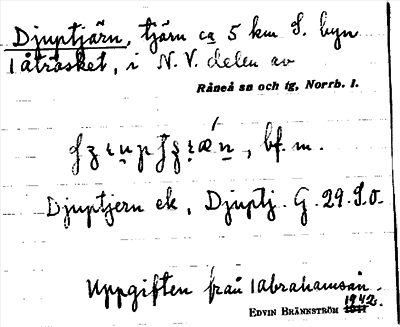 Djuptjärn, tjärn ca 5 km S. byn
Tåträsket, i N.V. delen av
Råneå sn och tg, Norrb. l.
bf. m.
Djuptjern ek, Djuptj. G. 29. S.o.
Uppgiften från I Abrahamsån.
EDVIN BRÄNNSTRÖM 1942.